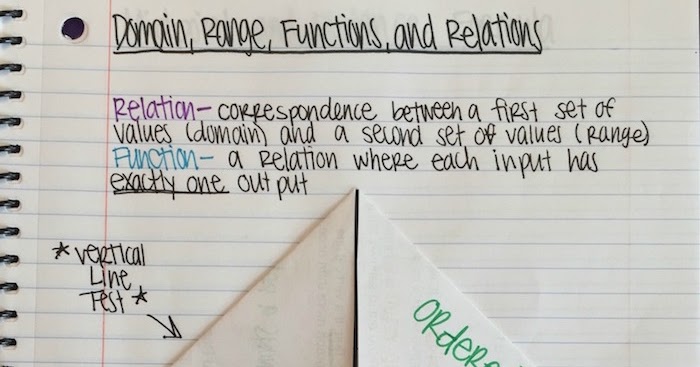 Domain, Range, Functions, and Relations
Relation- correspondence between a first set of
values (domain) and a second set of values (Range)
Function- a Relation where each input has
exactly one output
*Vertical
Line
Test*